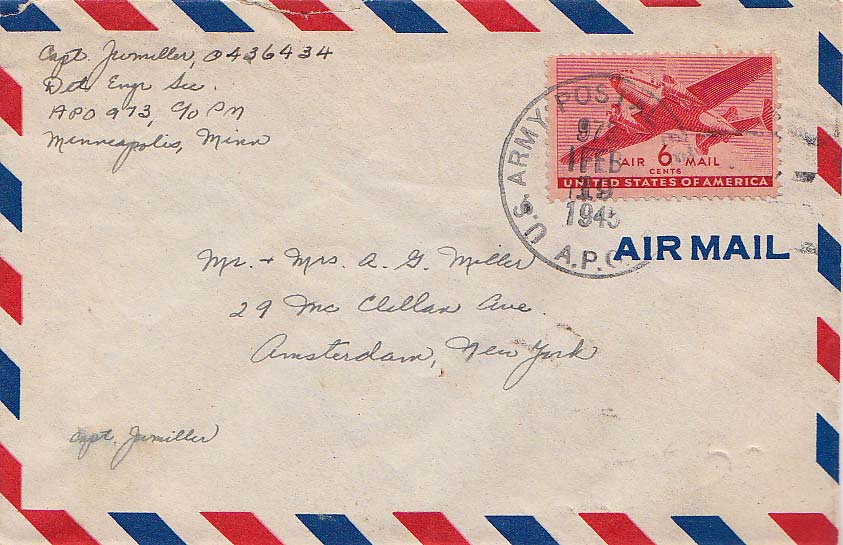 Capt. JWmiller, O436434
Det. Engr Sec.
APO 973, C/O PM
Minneapolis, Minn
AIR 6 MAIL
CENTS
UNITED STATES OF AMERICA
U.S. ARMY POSTAL
FEB
19
1945
A.P.O.
AIR MAIL
Mr. + Mrs. A. G. Miller
29 Mc Clellan Ave.
Amsterdam, New York
Capt. JWmiller